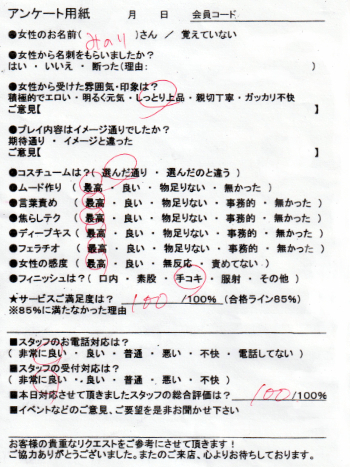 アンケート用紙　月　日　会員コード
●女性のお名前( みのり )さん ／ 覚えていない
●女性から名刺をもらいましたか？
はい ・ いいえ ・ 断った(理由: )
●女性から受けた雰囲気・印象は？
積極的でエロい・明るく元気・しっとり上品・親切丁寧・ガッカリ不快
ご意見【 】
●プレイ内容はイメージ通りでしたか？
期待通り ・ イメージと違った
ご意見【 】
●コスチュームは？( 選んだ通り ・ 選んだのと違う )
●ムード作り ( 最高 ・ 良い ・ 物足りない ・ 無かった )
●言葉責め ( 最高 ・ 良い ・ 物足りない ・ 事務的 ・ 無かった )
●焦らしテク ( 最高 ・ 良い ・ 物足りない ・ 事務的 ・ 無かった )
●ディープキス ( 最高 ・ 良い ・ 物足りない ・ 事務的 ・ 無かった )
●フェラチオ ( 最高 ・ 良い ・ 物足りない ・ 事務的 ・ 無かった )
●女性の感度 ( 最高 ・ 良い ・ 無反応 ・ 責めてない )
●フィニッシュは？( 口内 ・ 素股 ・ 手コキ ・ 服射 ・ その他 )
★サービスご満足度は？ 100 /100% (合格ライン85%)
※85%に満たなかった理由
■スタッフのお電話対応は？
( 非常に良い ・ 良い ・ 普通 ・ 悪い ・ 不快 ・ 電話してない )
■スタッフの受付対応は？
( 非常に良い ・ 良い ・ 普通 ・ 悪い ・ 不快 )
■本日対応させて頂きましたスタッフの総合評価は？ 100/100%
■イベントなどのご意見、ご要望を是非お聞かせ下さい
お客様の貴重なリクエストをご参考にさせて頂きます！
ご協力ありがとうございました。またのご来店、心よりお待ちしております。